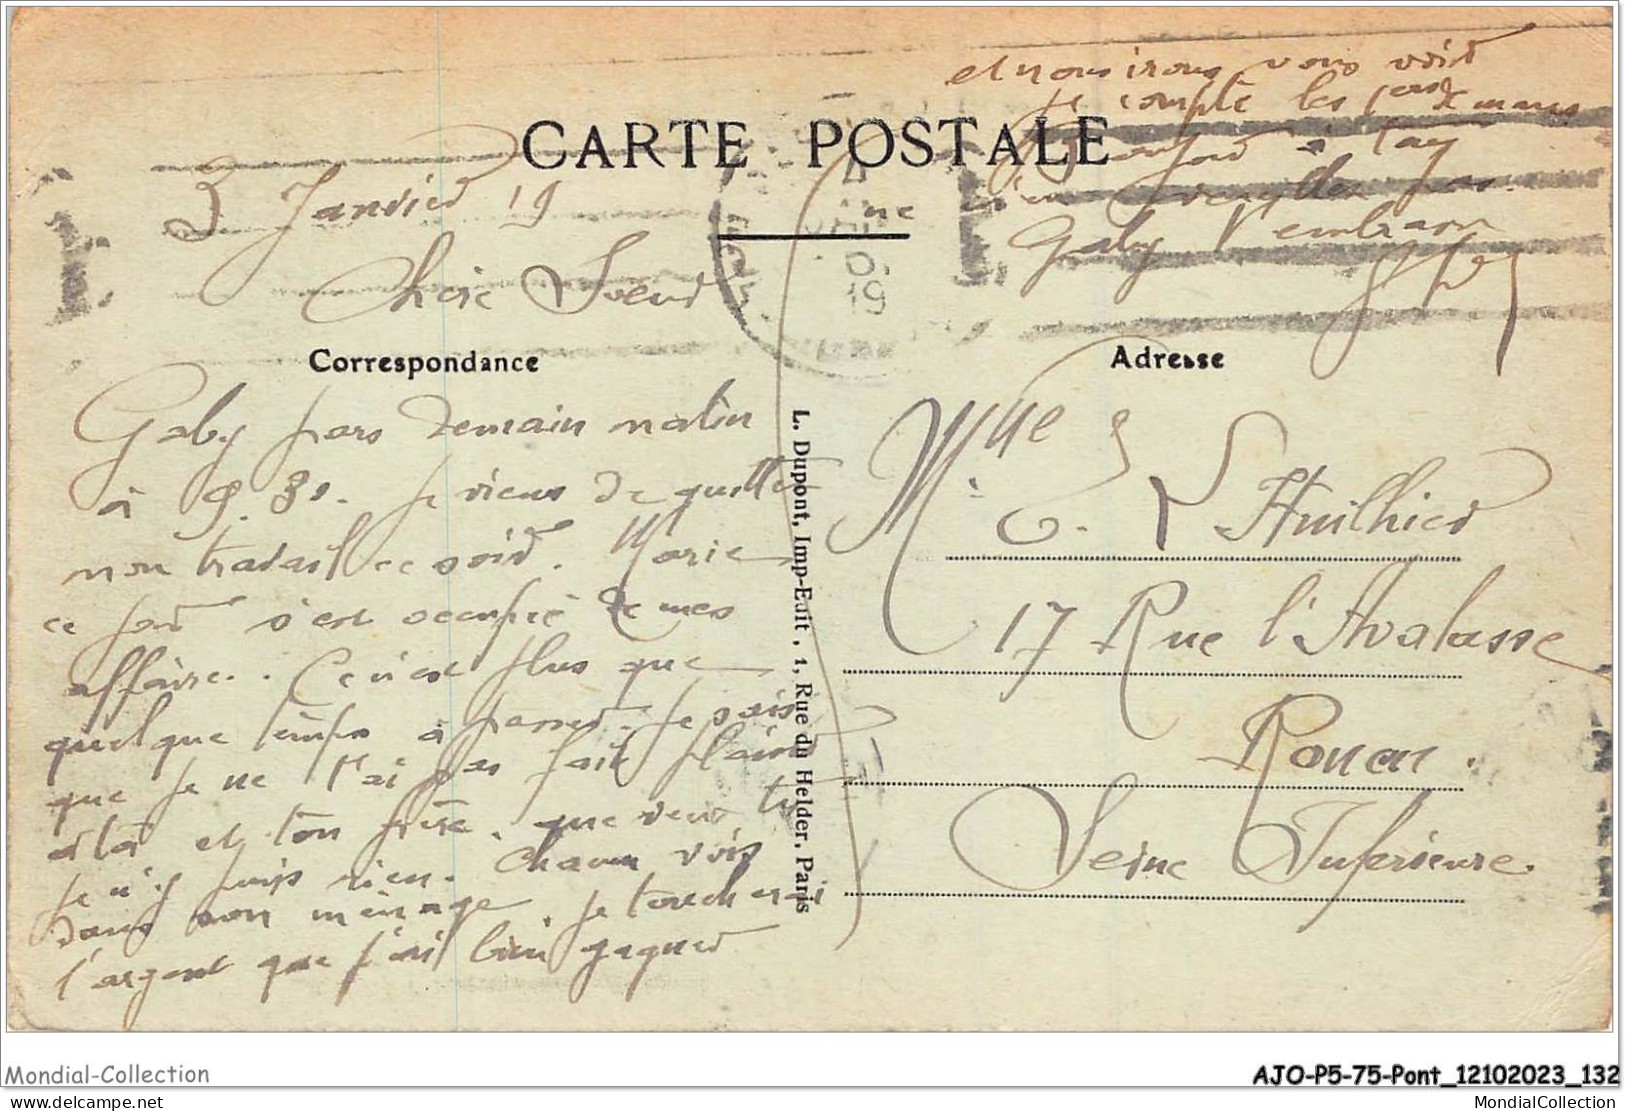 CARTE POSTALE
3 Janvier 19
Chere Soeur
Correspondance
Gaby pars demain matin
à 9.30. Je viens de quitter
mon travail ce soir. Marie
ce jour s'est occupée de mes
affaire.. Ce n'est plus que
quelque temps à passer. Je sais
que je ne t'ai pas fait plaisir
à toi et ton frère. que veux tu
je n'y puis rien. Chacun vois
dans son ménage. je toucherai
l'argent que j'ai bien gagner
et nous irons vous voir
je compte les 1ers de mars
à Tay
Gaby t'embrasse
L. Dupont, Imp-Edit, 1, Rue du Helder, Paris
Adresse
Mlle
G. L'Huilhier
17 Rue l'Avalasse
Rouen.
Seine Inferieure.
Mondial-Collection
AJO-P5-75-Pont_12102023_132
mondial-collection.com
MondialCollection